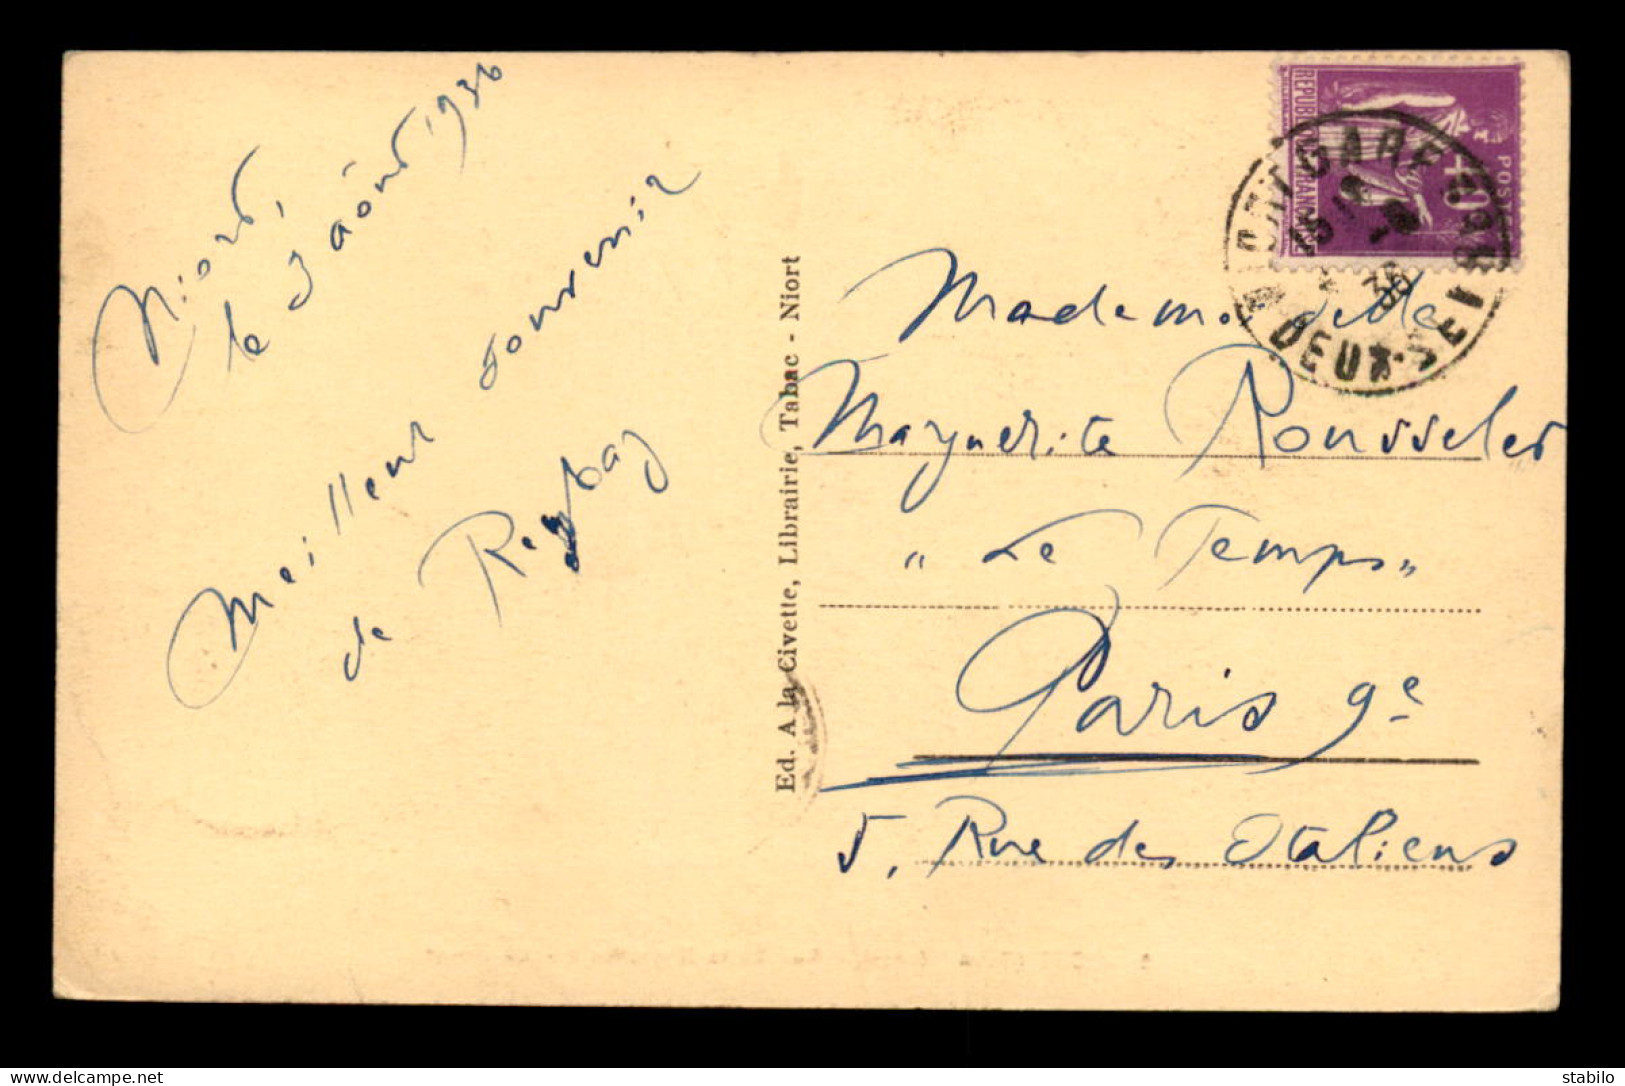 Niort,
le 3 août 1936
Meilleur souvenir
de
Ed. A la Civette, Librairie, Tabac - Niort
REPUBLIQUE FRANÇAISE
POSTES
40
NIORT GARE
36
DEUX-SEVRES
Mademoiselle
Marguerite
"Le Temps"
Paris 9e
5, Rue des Italiens
delcampe.net
stabilo